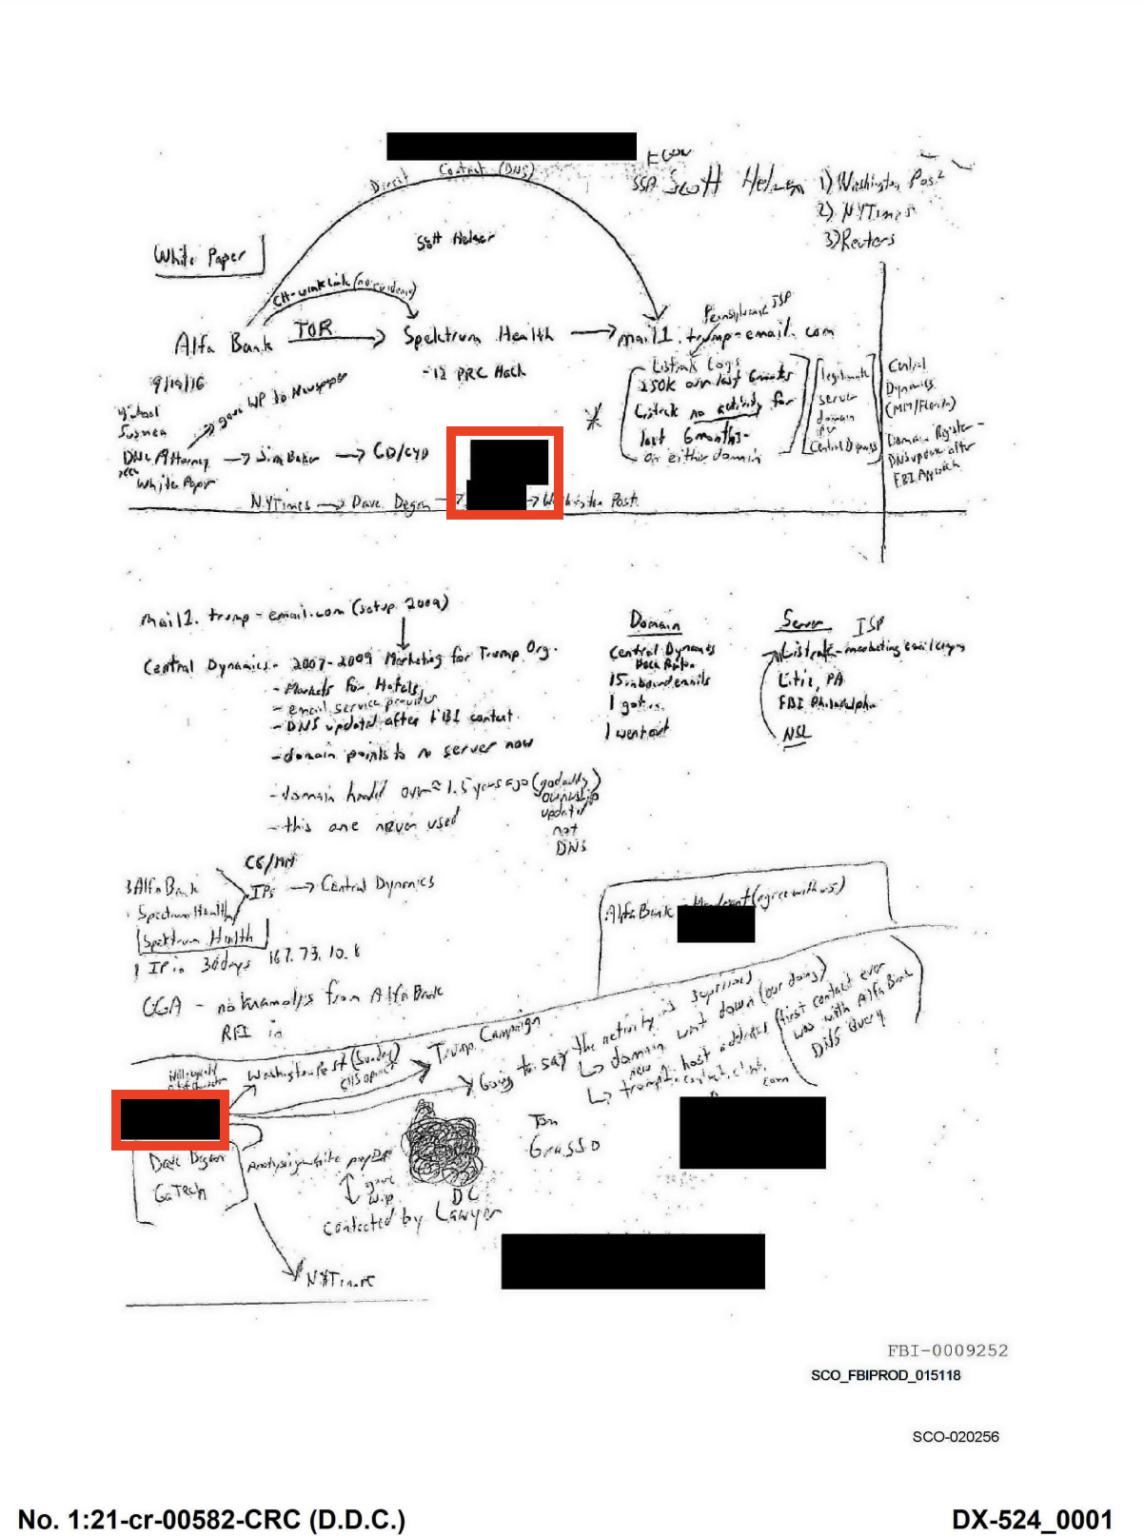 Direct Contact (DNS)
ECOU
SSA Scott Helman 1) Washington Post
2) NYTimes
3) Reuters
Scott Helman
White Paper
CH-wink link (no evidence)
Pennsylvania ISP
Alfa Bank TOR Spektrum Health mail1.trump-email.com
-12 PRC Hack
9/19/16
gave WP to Newspaper
Listrak Logs
250K over last 6 months
Listrak no activity for
last 6 months-
on either domain
legitimate
server
domain
for
Central Dynamics
Central
Dynamics
(MM/Florida)
Domain Register-
DNS update after
FBI Approach
Michael
Sussman
DNC Attorney → Jim Baker → CD/CYD
White Paper
NYTimes → Dave Degan → → Washington Post
mail1.trump-email.com (setup 2009)
Central Dynamics- 2007-2009 Marketing for Trump Org.
- Markets for Hotels
- email service provider
- DNS updated after FBI contact
- domain points to no server now
- domain handed over ≈ 1.5 years ago (godaddy)
ownership
updated
not
DNS
- this one never used
Domain
Central Dynamics
Boca Raton
15 inbound emails
1 got in
1 went out
Server ISP
Listrak - marketing email
Litiz, PA
FBI Philadelphia
NSL
3 Alfa Bank
1 Spectrum Health
CG/MM
IPs → Central Dynamics
Spektrum Health
1 IP in 30 days 167.73.10.8
OGA - no from Alfa Bank
RFI in
Alfa Bank - Mandiant (agree with us)
Washington Post (Sunday)
Trump Campaign
Going to say the activity is
↳ domain went down (our doing)
↳ new host address (first contact ever
was with Alfa Bank
DNS Query
Dave Degan
GaTech
Analysis white paper
gave
WP
DC
contacted by Lawyer
Tom
Grasso
NYTimes
FBI-0009252
SCO_FBIPROD_015118
SCO-020256
No. 1:21-cr-00582-CRC (D.D.C.) DX-524_0001